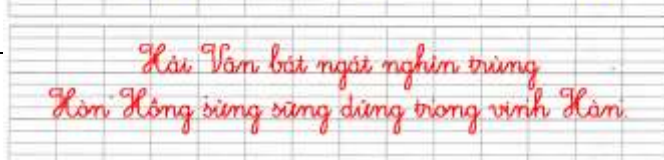 Hải Vân bát ngát nghìn trùng
Hòn Hồng sừng sững đứng trong vịnh Hàn.